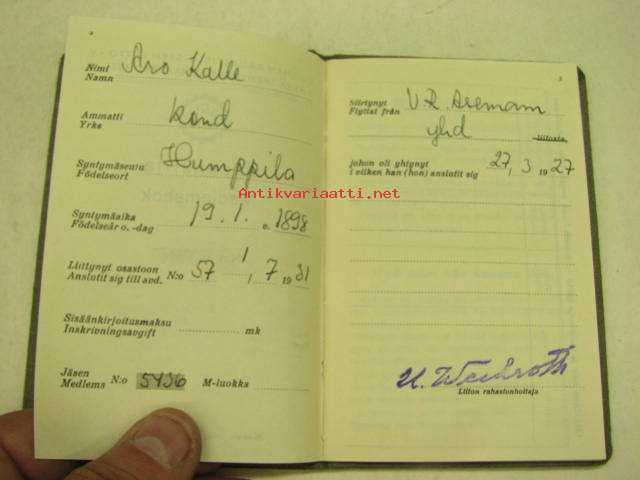 Nimi
Namn
Aro Kalle
Ammatti
Yrke
kond
Syntymäseutu
Födelseort
Humppila
Syntymäaika
Födelseår o. -dag
19. 1. 1898
Liittynyt osastoon
Anslutit sig till avd. N:o 57 1/7 1931
Sisäänkirjoitusmaksu
Inskrivningsavgift mk
Jäsen
Medlems N:o 5436 M-luokka
3
Siirtynyt
Flyttat från
V R. Asemam
yhd liitosta
johon oli yhtynyt
i vilken han (hon) anslutit sig 27/3 1927
Liiton rahastonhoitaja
Antikvariaatti.net